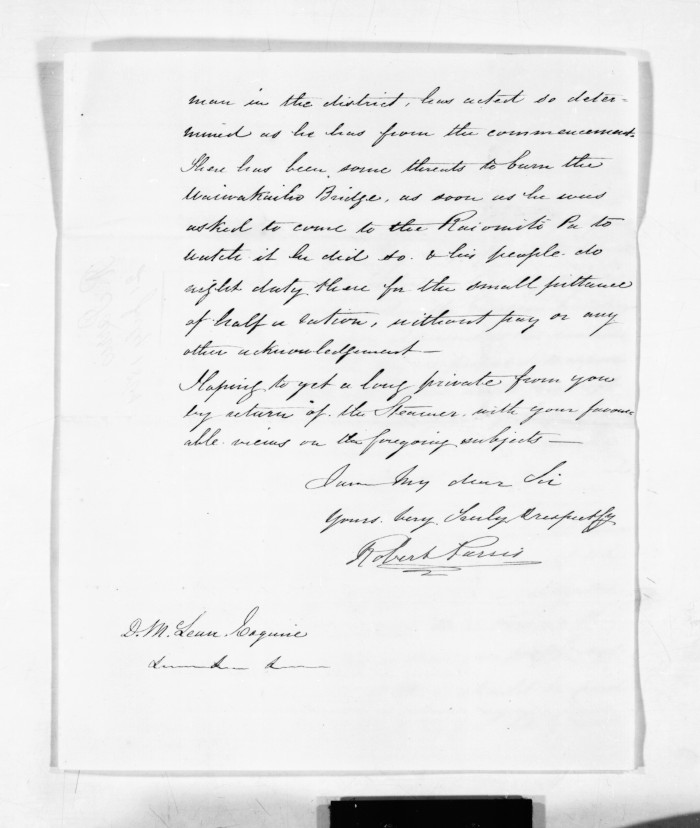 man in the district, has acted so deter-
mined as he has from the commencement.
There has been some threats to burn the
Waiwakaiho Bridge, as soon as he was
asked to come to the Raiomiti Pa to
watch it he did so. & his people do
night duty there for the small pittance
of half a ration, without pay or any
other acknowledgement—
Hoping to get a long private from you
by return of the Steamer with your favour-
able views on the foregoing subjects—
I am My dear Sir
Yours very truly & respectfy
Robert Parris
D. McLean Esquire